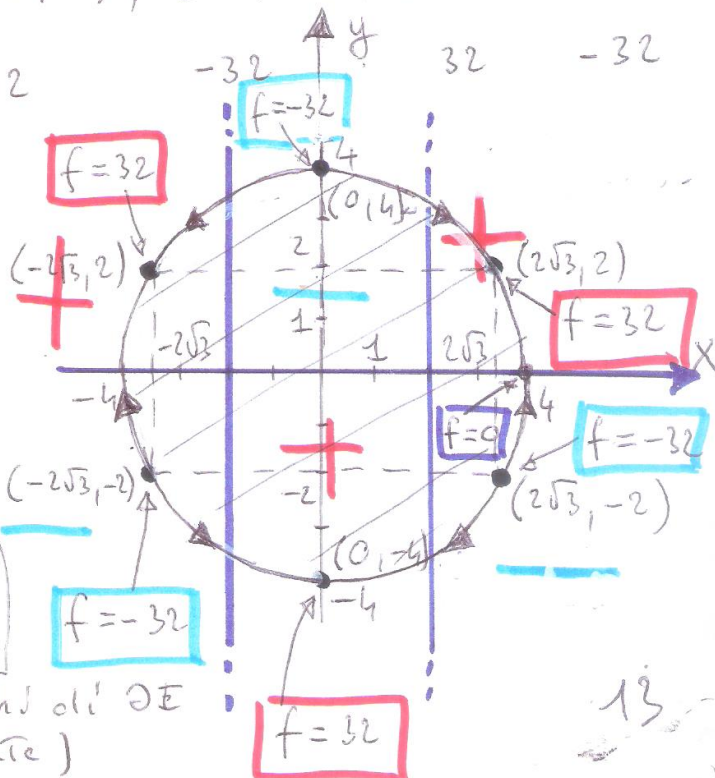 y
2 -32 32 -32
f=-32
f=32 4
(0,4)
(-2√3, 2) 2 (2√3, 2)
f=32
1
-2√3 1 2√3 x
-4 4
f=0 f=-32
(-2√3, -2) -2 (2√3, -2)
(0,-4)
-4
f=-32
di ∂E
f=32
13